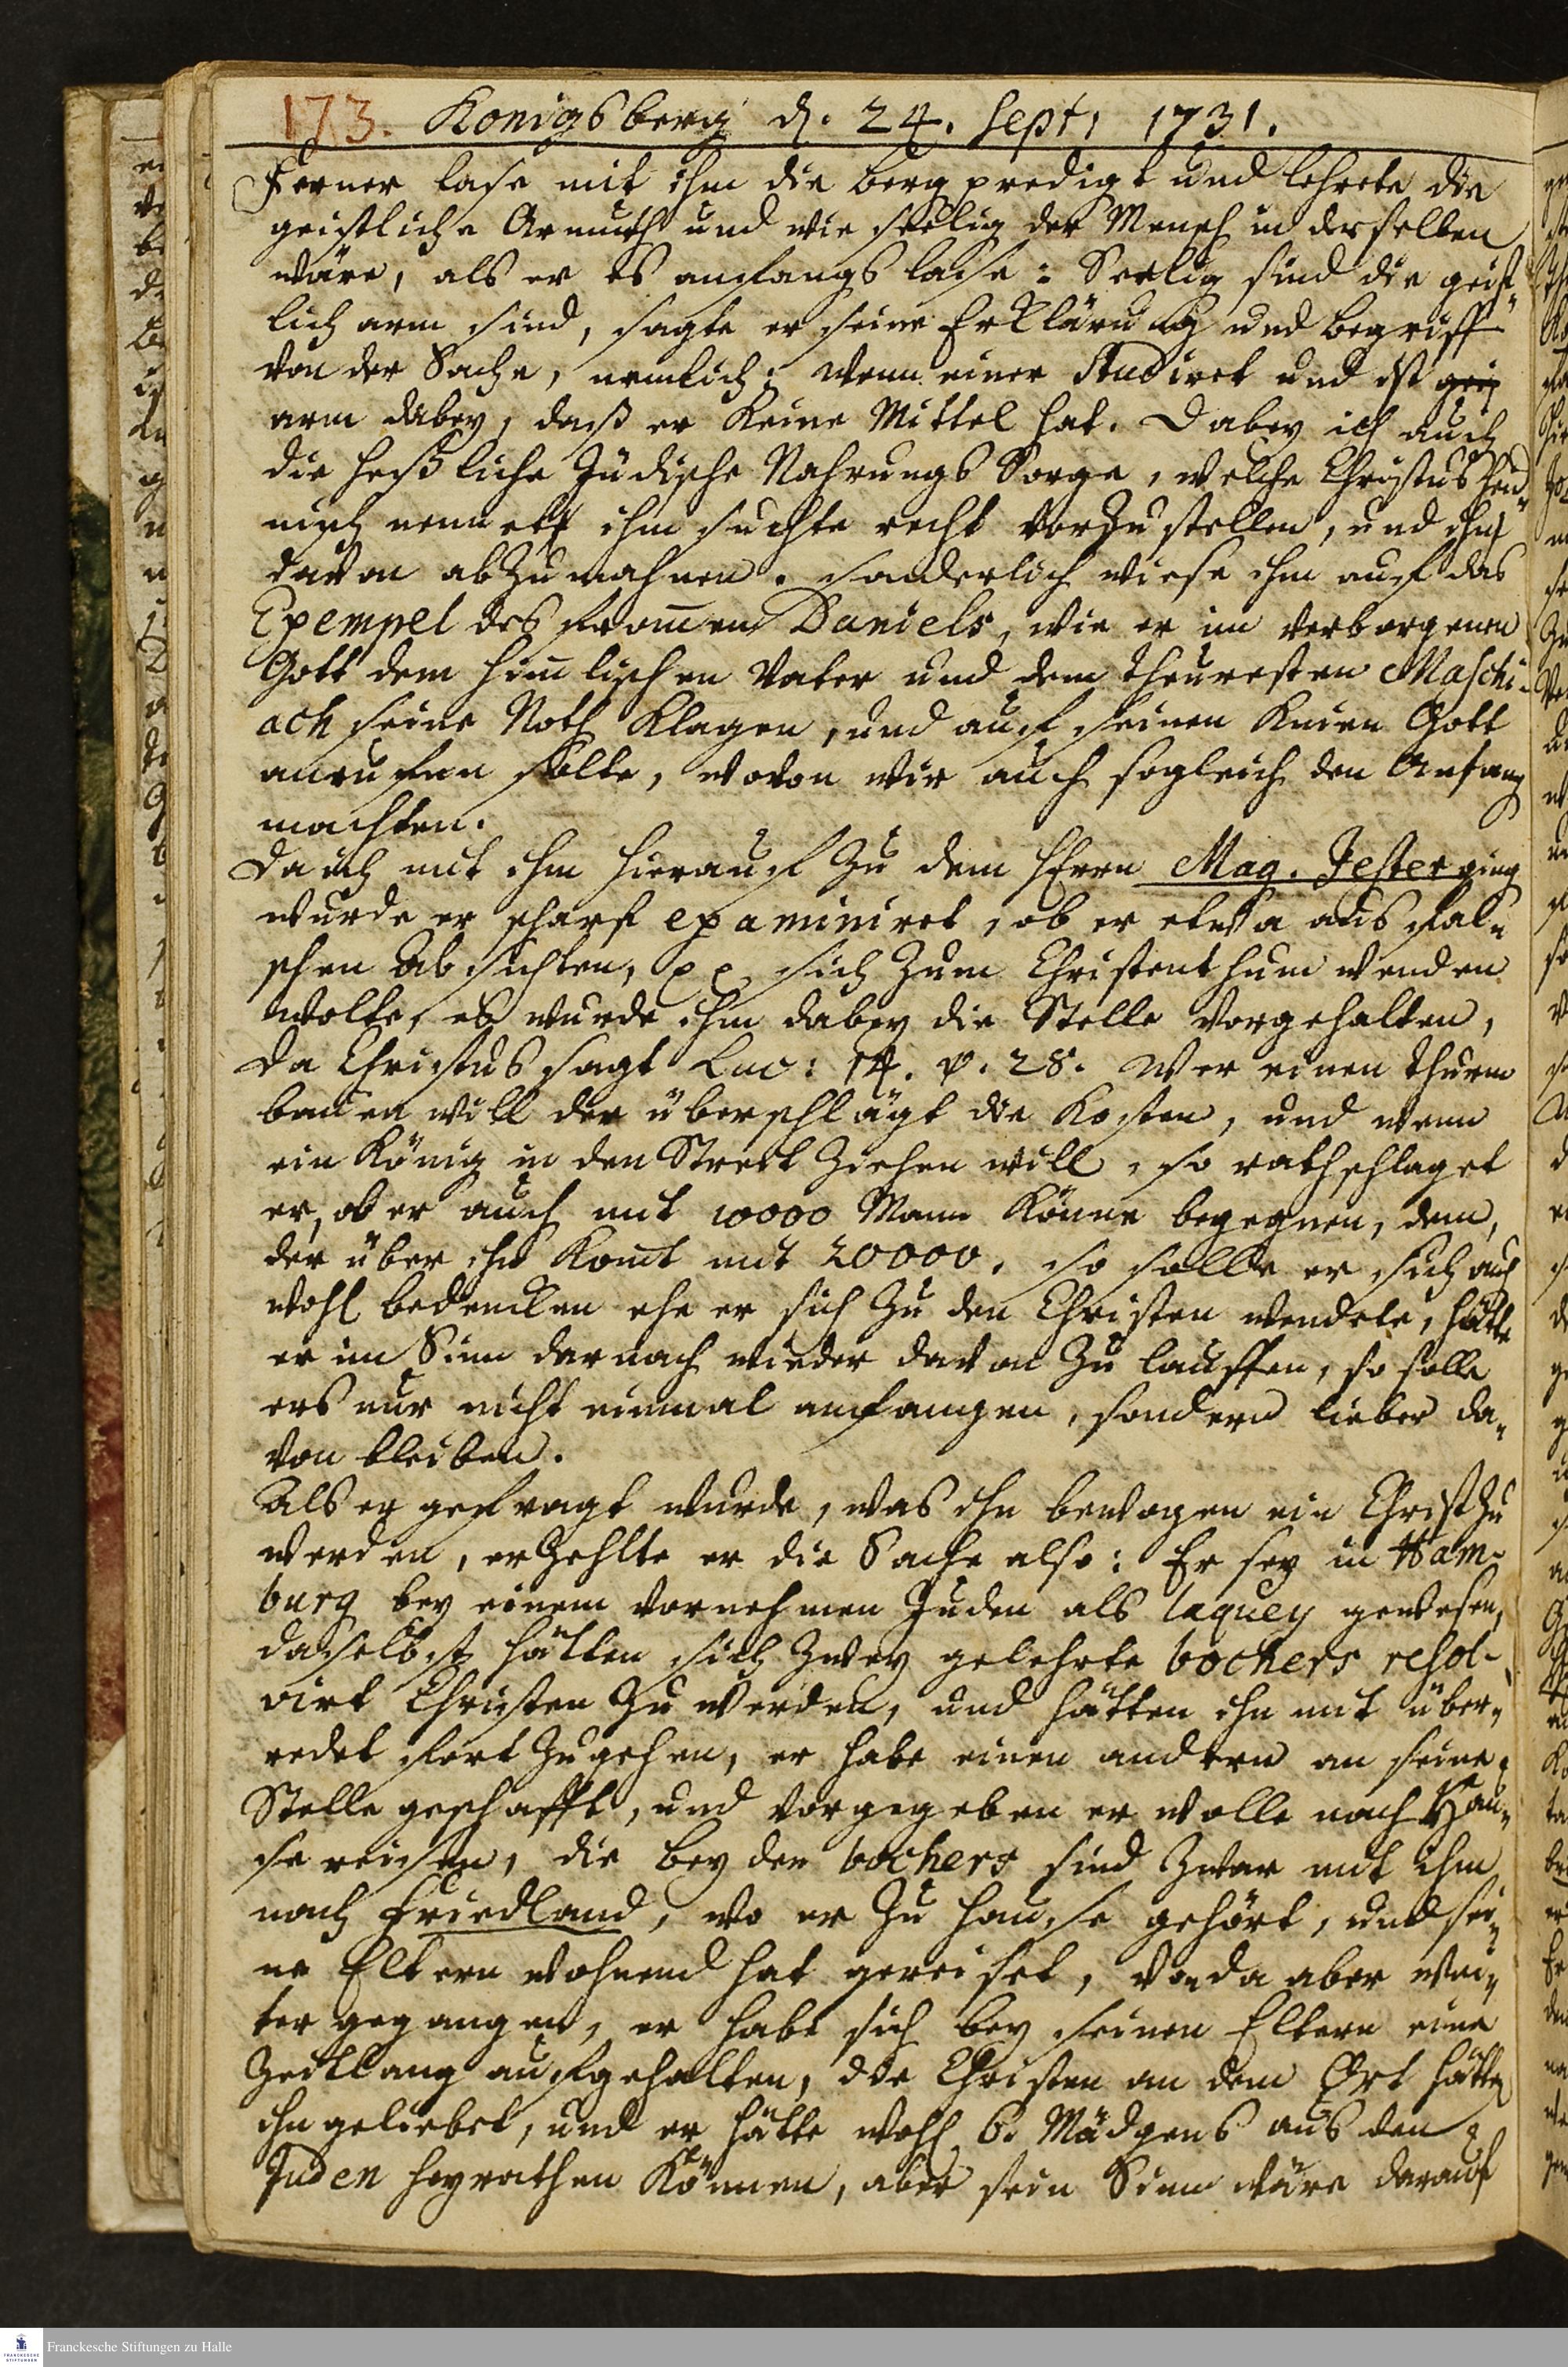 173. Konigsberg d. 24. Sept, 1731.
Ferner lase mit ihm die Bergpredigt und lehrete die
geistliche Armuth und wie seelig der Mensch in derselben
wäre, als er es anfangs lase: Seelig sind die geist„
lich arm sind, sagte er seine Erklärung und Begriff
von der Sache, nemlich: wenn einer Studiret und ist
arm dabey, daß er keine Mittel hat. Dabey ich auch
die heßliche Jüdische Nahrungs Sorge, welche Christus heid„
nisch nennet ihm suchte recht vorzustellen, und ihn
davon abzumahnen. sonderlich wiese ihm auf das
Exempel des from̅en Daniels, wie er im verborgenen
Gott dem him̅lischen Vater und dem theuresten Maschi-
ach seine Noth klagen, und auf seinen Knien Gott
anrufen solte, wovon wir auch sogleich den Anfang
machten.
Da ich mit ihm hierauf zu dem Herrn Mag. Jester ging
wurde er scharf examiniret, ob er etwa aus fal„
schen Absichten, pp sich zum Christenthum wenden
wolte, es wurde ihm dabey die Stelle vorgehalten,
Da Christus sagt Luc: 14. v. 28. Wer einen thurm
bauen will der überschlägt die Kosten, und wenn
ein König in den Streit ziehen will, so rathschlaget
er, ob er auch mit 10000 Mann könne begegnen, dem,
der über ihn kom̅t mit 20000. so solle er sich auch
wohl bedencken ehe er sich zu den Christen wendete, hätte
er im Sinn darnach wieder davon zu lauffen, so solle
ers nur nicht einmal anfangen, sondern lieber da„
von bleiben.
Als er gefragt wurde, was ihn bewogen ein Christ zu
werden, erzehlte er die Sache also: Er sey in Ham-
burg bey einem vornehmen Juden als laquey gewesen,
daselbst hätten sich zwey gelehrte bochers resol-
virt Christen zu werden, und hätten ihn mit über„
redet fort zugehen, er habe einen andern an seine
Stelle geschafft, und vorgegeben er wolle nach Hau„
se reisen, die beyden bochers sind zwar mit ihm
nach Friedland, wo er zu Hause gehört, und sei„
ne Eltern wohnend hat gereiset, von da aber wei„
ter gegangen, er habe sich bey seinen Eltern eine
Zeitlang aufgehalten, die Christen an dem Ort hätten
ihn geliebet, und er hätte wohl 6. Mädgens aus den
Juden heyrathen können, aber sein Sinn wäre darauf
Franckesche Stiftungen zu Halle